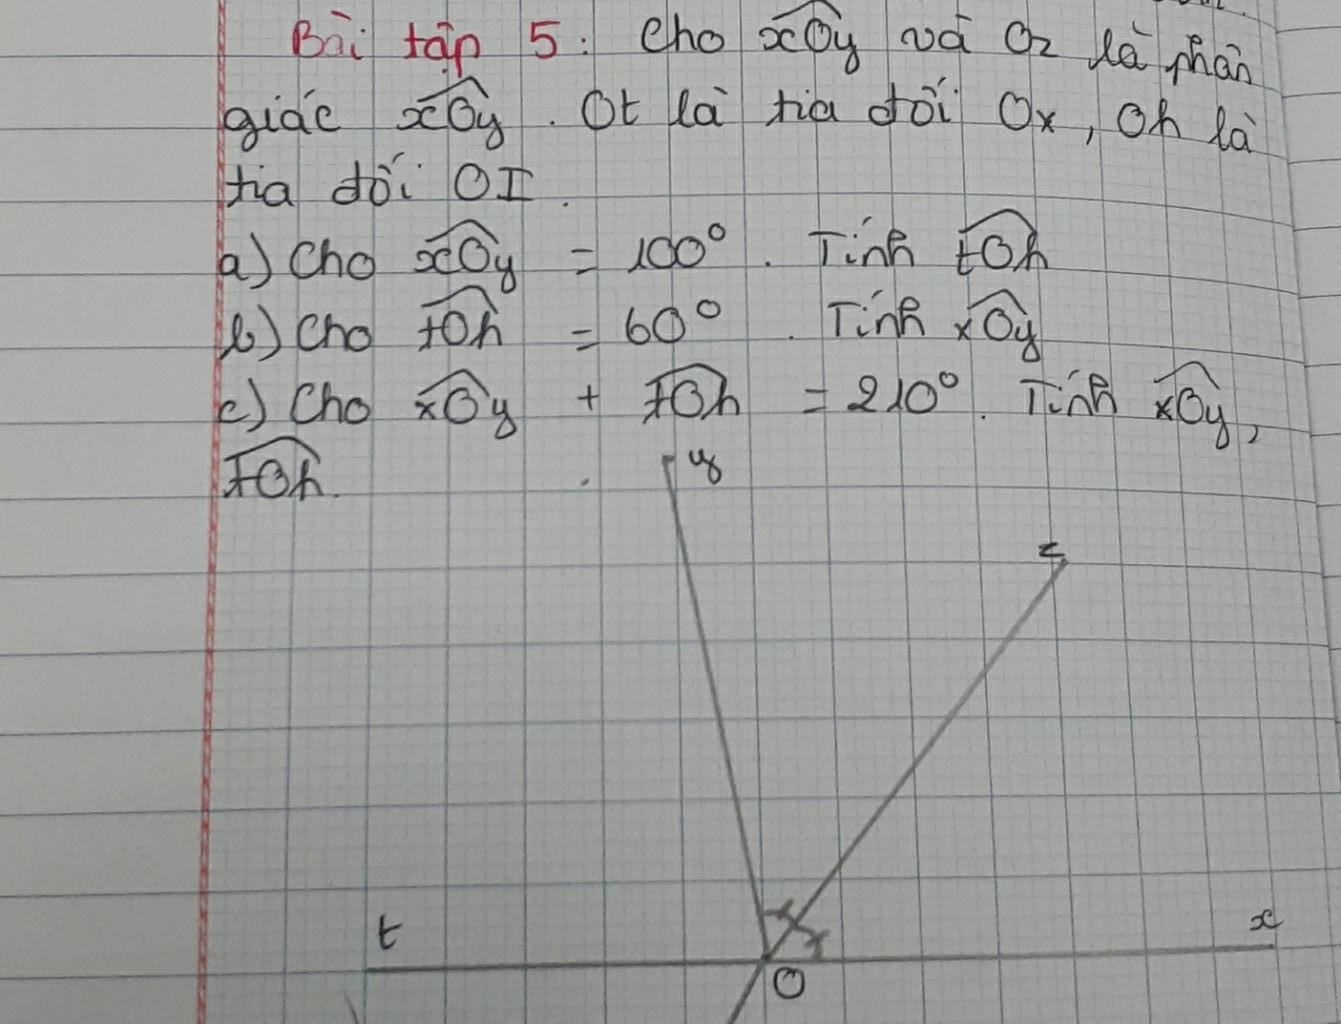 Bài tập 5: Cho xOy và Oz là phân
giác xOy. Ot là tia đối Ox, Oh là
tia đối OI.
a) Cho xOy = 100°. Tính tOh
b) Cho tOh = 60°. Tính xOy
c) Cho xOy + tOh = 210°. Tính xOy,
tOh.
y
z
t
x
O